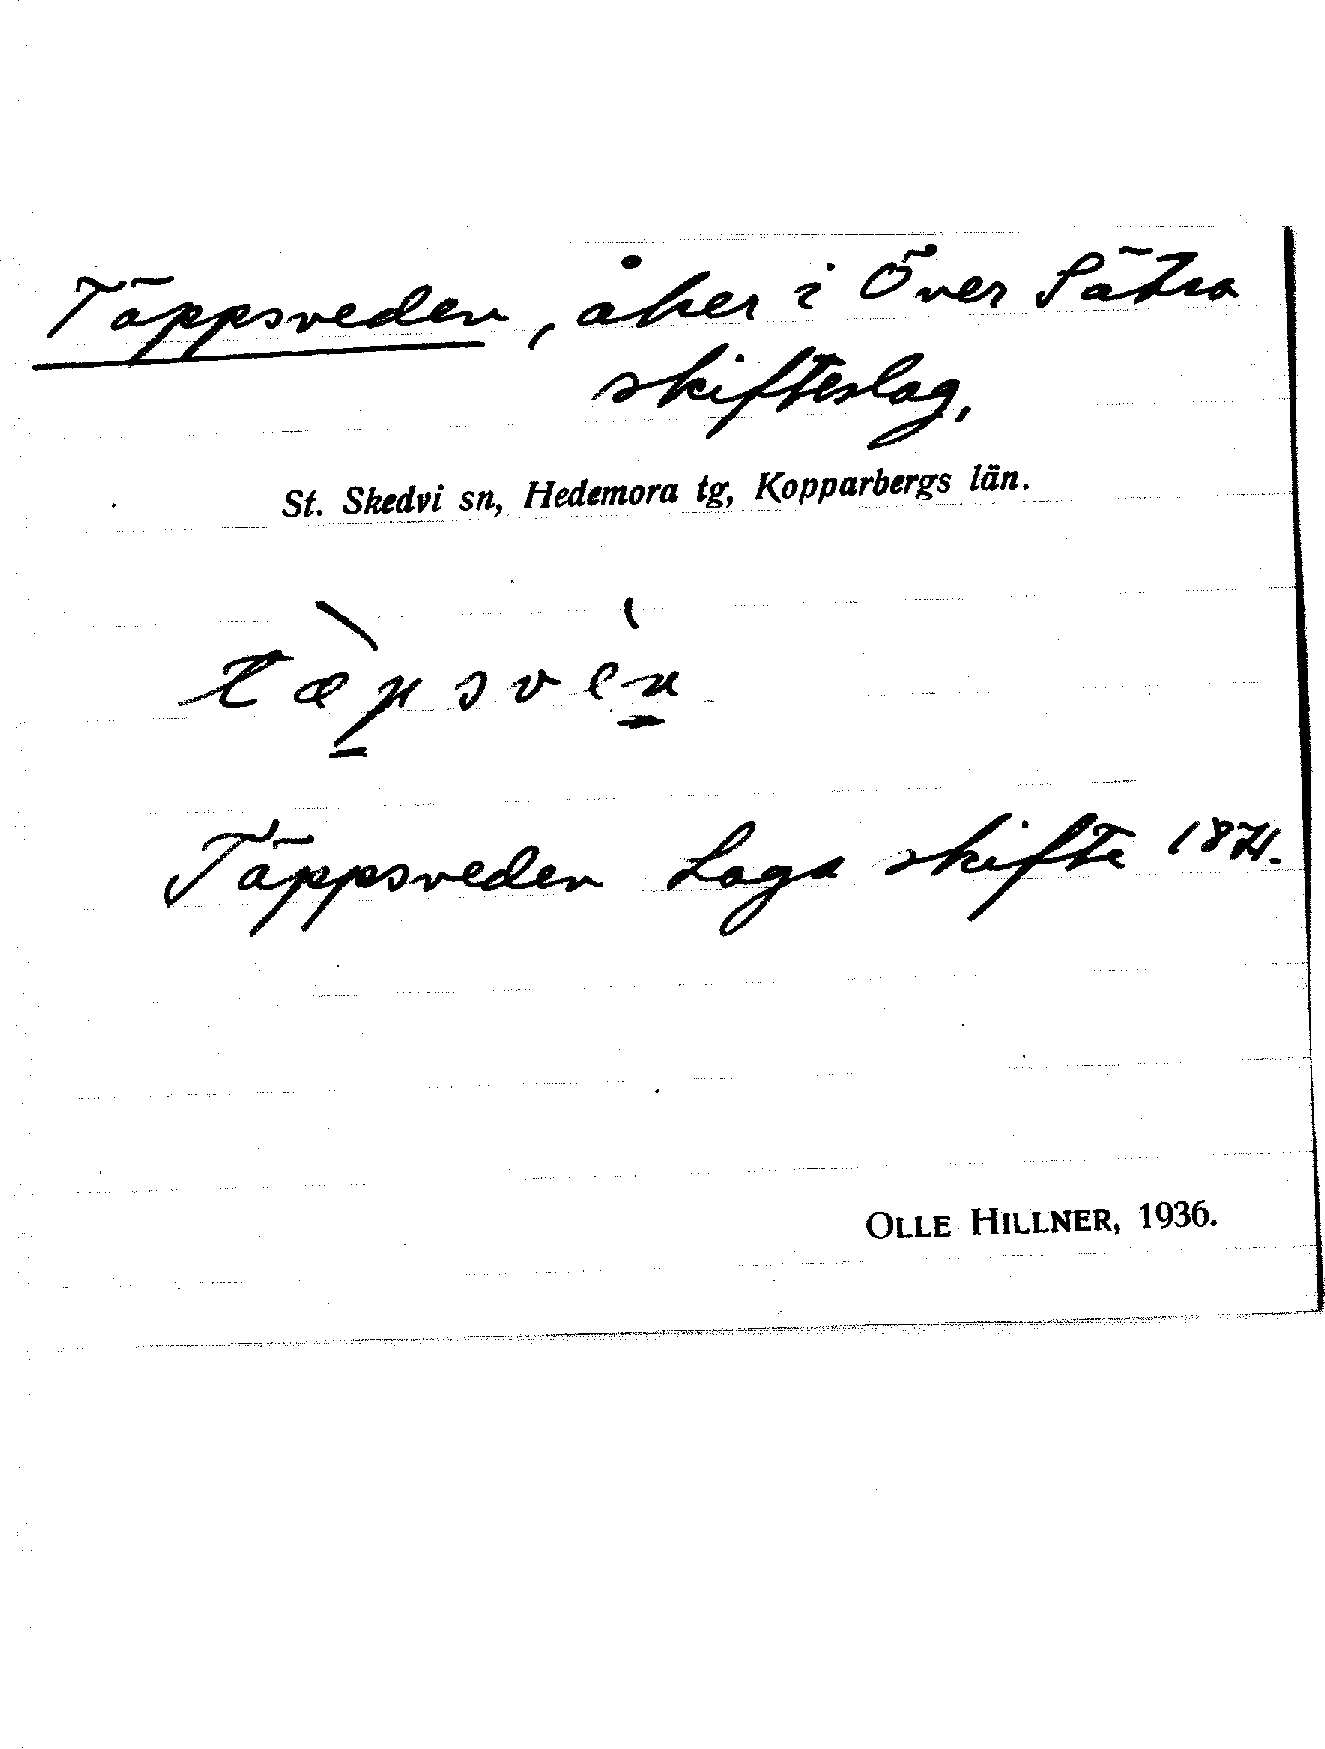 Täppsveden, åker i Över Sätra
skifteslag,
St. Skedvi sn, Hedemora tg, Kopparbergs län.
tæ̀p̲svén̲
Täppsveden Laga skifte
OLLE HILLNER, 1936.